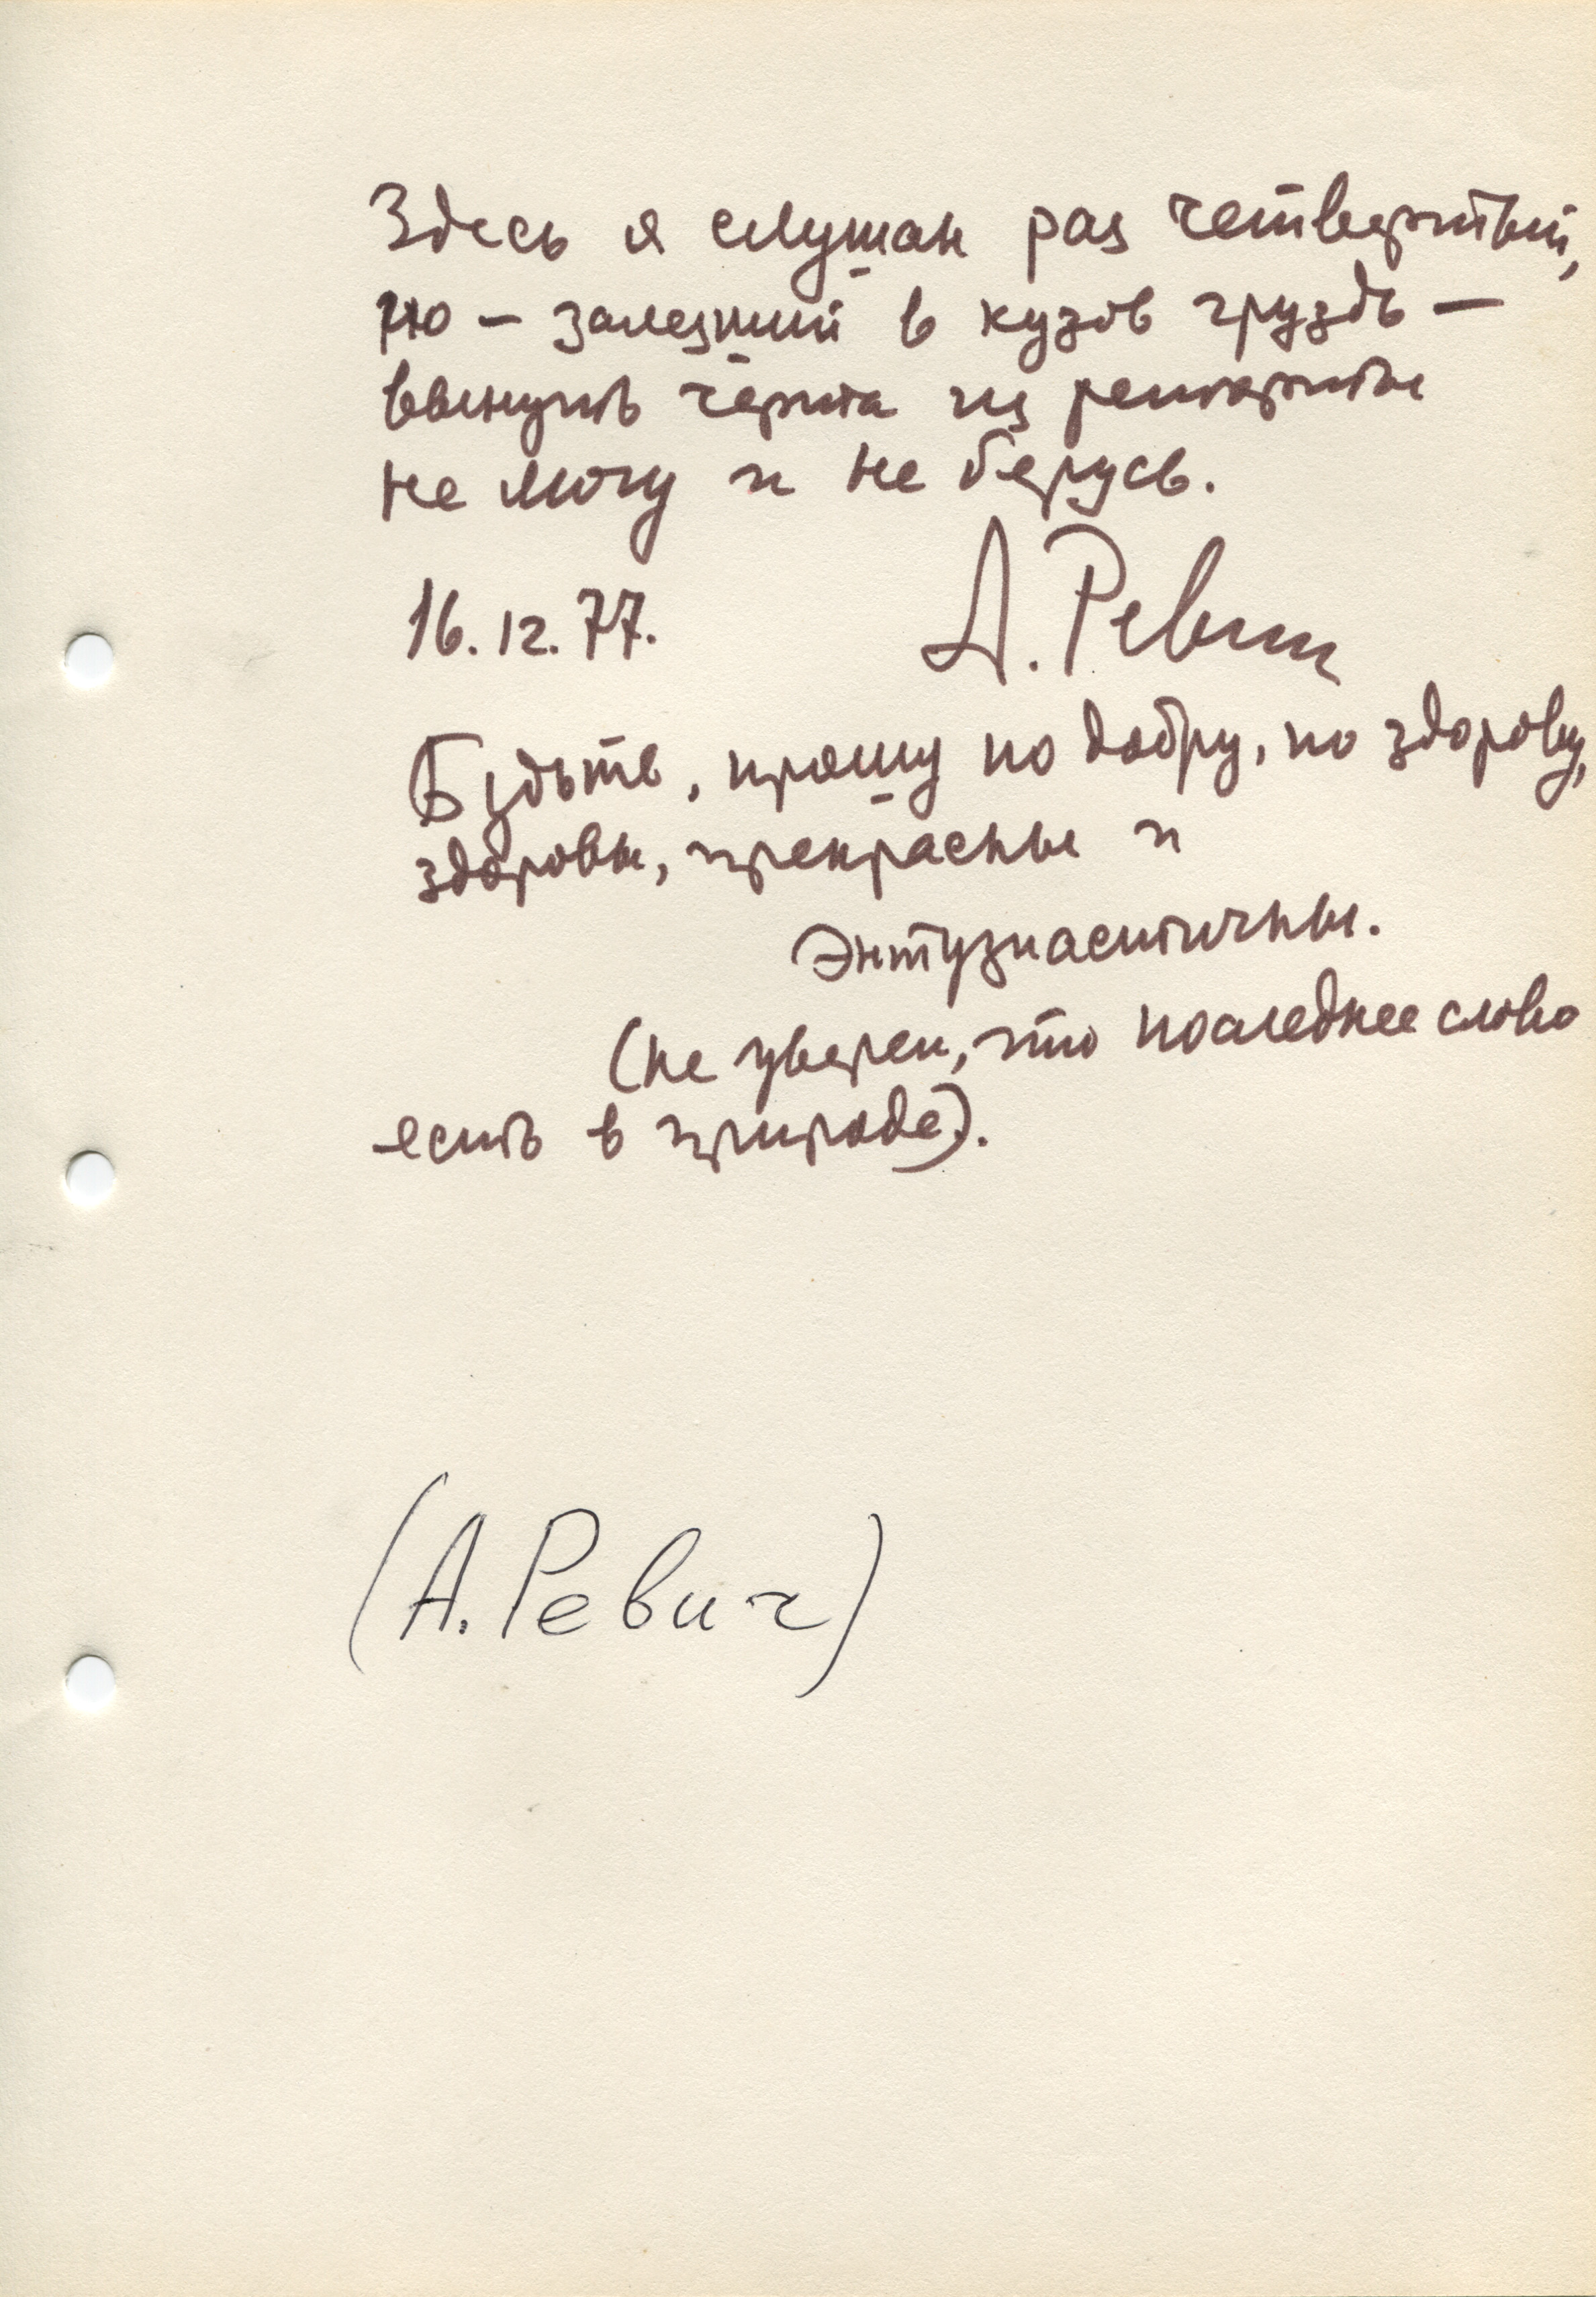 Здесь я слушан раз четвертый,
но – залезший в кузов груздь –
вынуть чёрта из реторты
не могу и не берусь.
16.12.77. А. Ревич
Будьте, прошу по добру, по здорову,
здоровы, прекрасны и
энтузиастичны.
(не уверен, что последнее слово
есть в природе).
(А. Ревич)